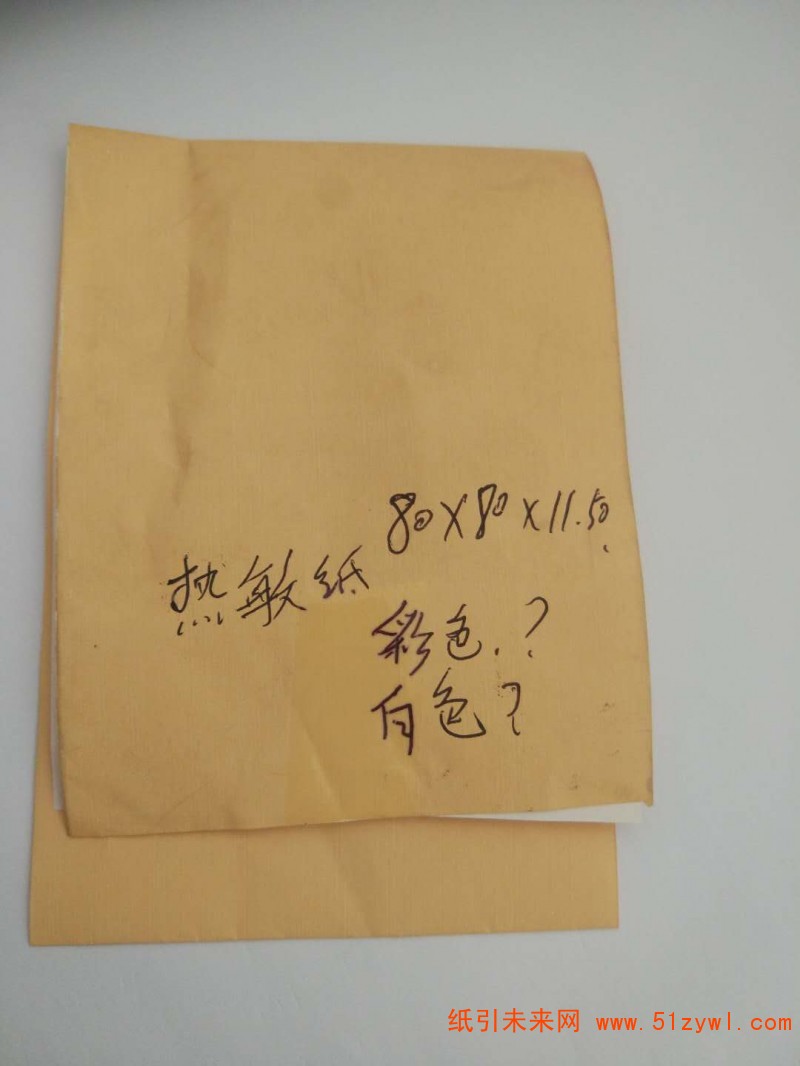 80X80X11.50
热敏纸
彩色.?
白色?
纸引未来网 www.51zywl.com